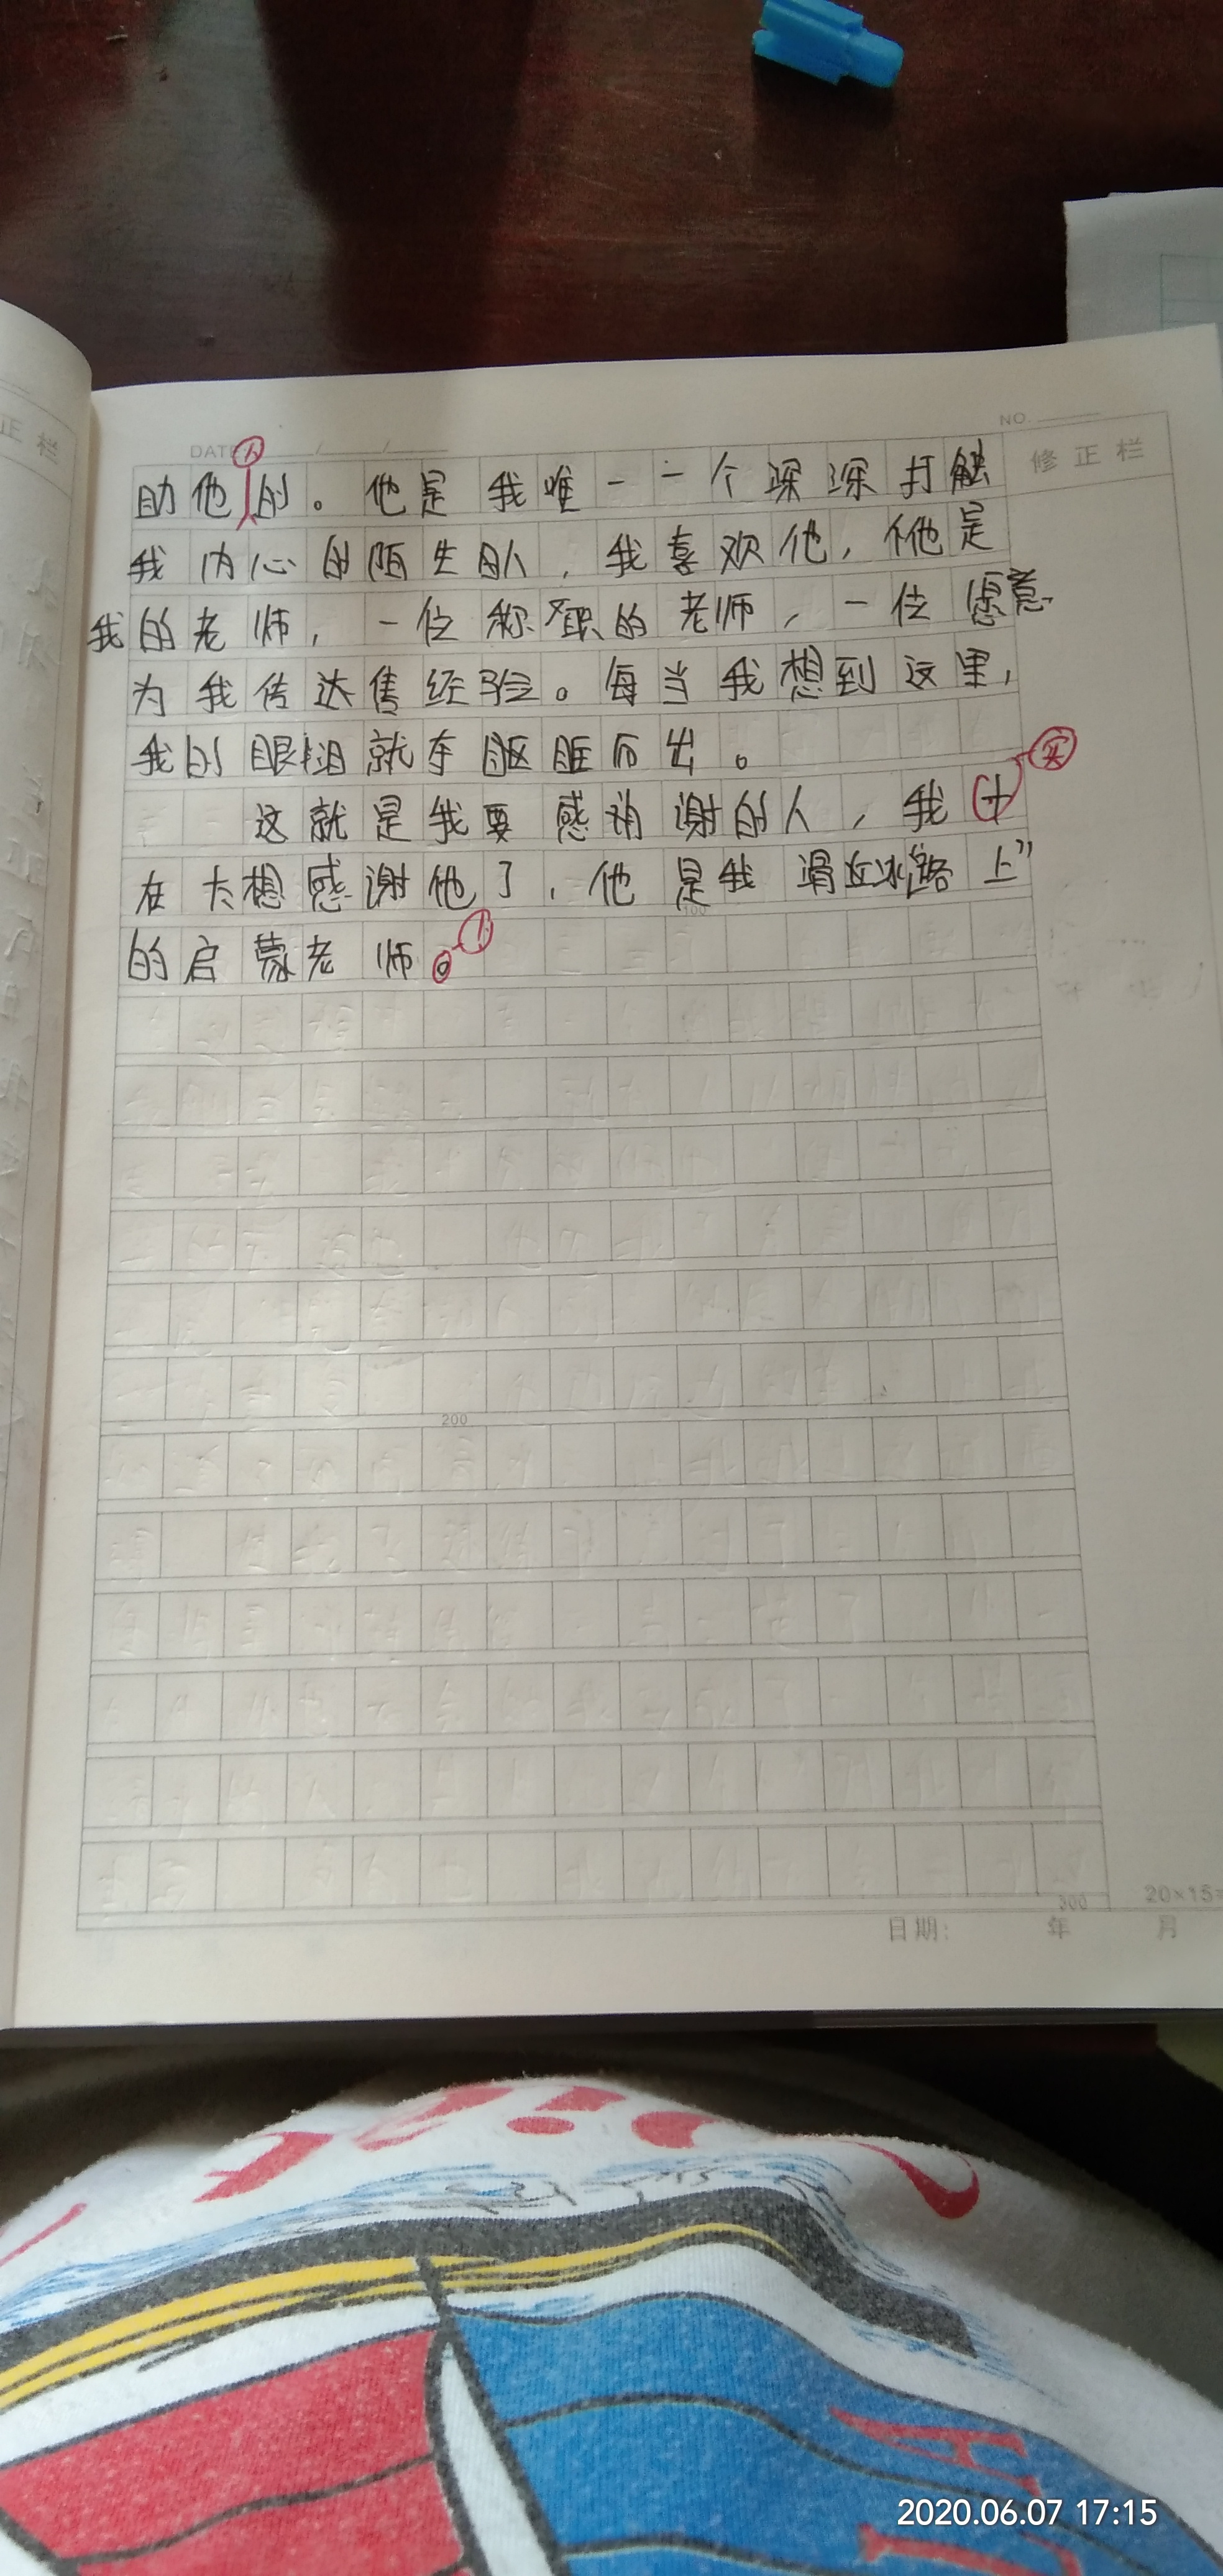 正栏
DATE / /
NO.
修正栏
人
助他的。他是我唯一一个深深打触
我内心的陌生人，我喜欢他，他是
我的老师，一位称职的老师，一位愿意
为我传达售经验。每当我想到这里，
我的眼泪就夺眶而出。
实
这就是我要感谢的人，我
在太想感谢他了，他是我滑冰路上”
的启蒙老师。
！
100
200
300
20×15=
日期： 年 月
2020.06.07 17:15